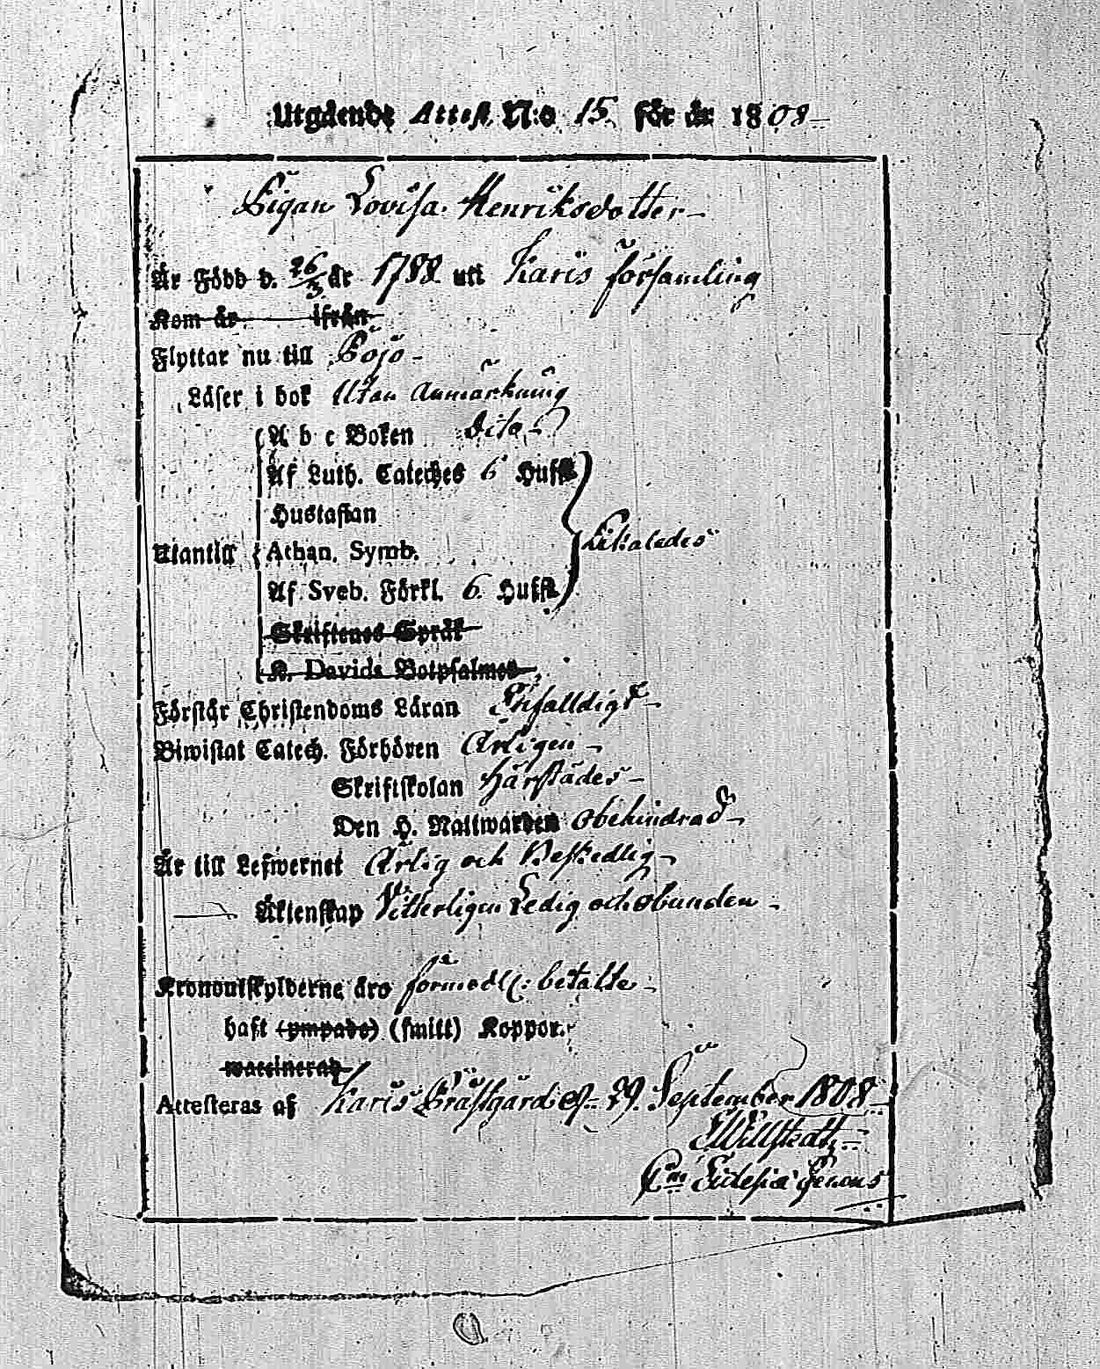 Utgående Attest N:o 15. för år 1808
Pigan Lovisa Henriksdotter
Är Född d. 26/3 år 1788 uti Karis församling
Kom år ifrån
Flyttar nu till Pojo
Läser i bok Utan Anmärkning
A b c Boken dito
Af Luth. Cateches 6 Hufst.
Hustaflan
Utantill Athan. Symb. Likaledes
Af Sveb. Förkl. 6. Hufst.
Skriftenes Språk
K. Davids Botpsalmer
Förstår Christendoms Läran Enfalldigt
Biwistat Catech. Förhören Årligen
Skriftskolan Härstädes
Den H. Nattwarden obehindrad
Är till Lefwernet Ärlig och Beskedlig
Äktenskap Vitterligen Ledig och obunden
Kronoutskylderne äro förmodl: betalte
haft (ympade) (smitt) Koppor.
waccinerad
Attesteras af Karis Prästgård d. 29. September 1808